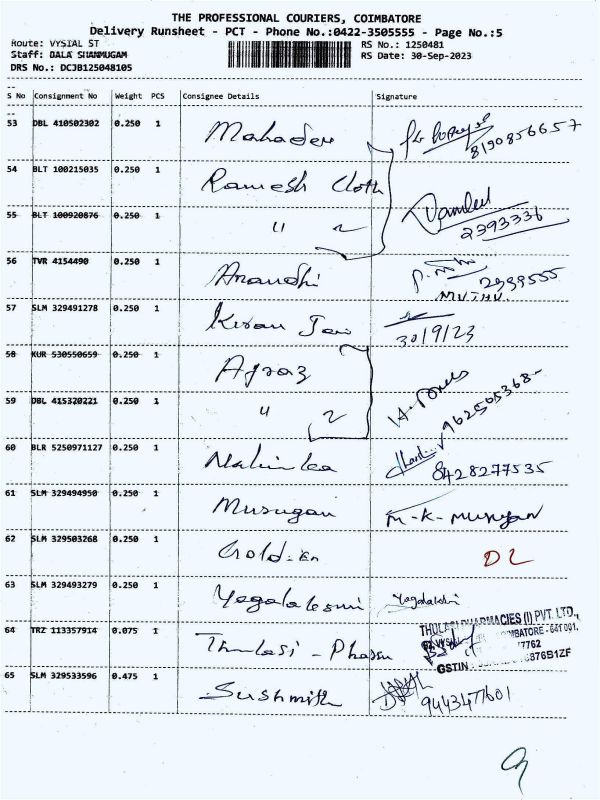 THE PROFESSIONAL COURIERS, COIMBATORE
Delivery Runsheet - PCT - Phone No.:0422-3505555 - Page No.:5
Route: VYSIAL ST RS No.: 1250481
Staff: BALA SHANMUGAM RS Date: 30-Sep-2023
DRS No.: DCJB125048105
S No Consignment No Weight PCS Consignee Details Signature
53 DBL 410502302 0.250 1 Mahadev 8190856657
54 BLT 100215035 0.250 1 Ramesh Cloth
55 BLT 100920876 0.250 1 " 2 2393336
56 TVR 4154490 0.250 1 Anandhi 2999555
57 SLM 329491278 0.250 1 Kiran Jain 30/9/23
58 KUR 530550659 0.250 1 Ajraz
59 DBL 415320221 0.250 1 " 2
60 BLR 5250971127 0.250 1 8428277535
61 SLM 329494950 0.250 1 Murugan M-K-Murugan
62 SLM 329503268 0.250 1 DL
63 SLM 329493279 0.250 1 Yogalakshmi Yogalakshi
64 TRZ 113357914 0.075 1 Thulasi - Pharm THULASI PHARMACIES (I) PVT. LTD.,
7762
GSTIN 876B1ZF
65 SLM 329533596 0.475 1 Sushmith 9443477601